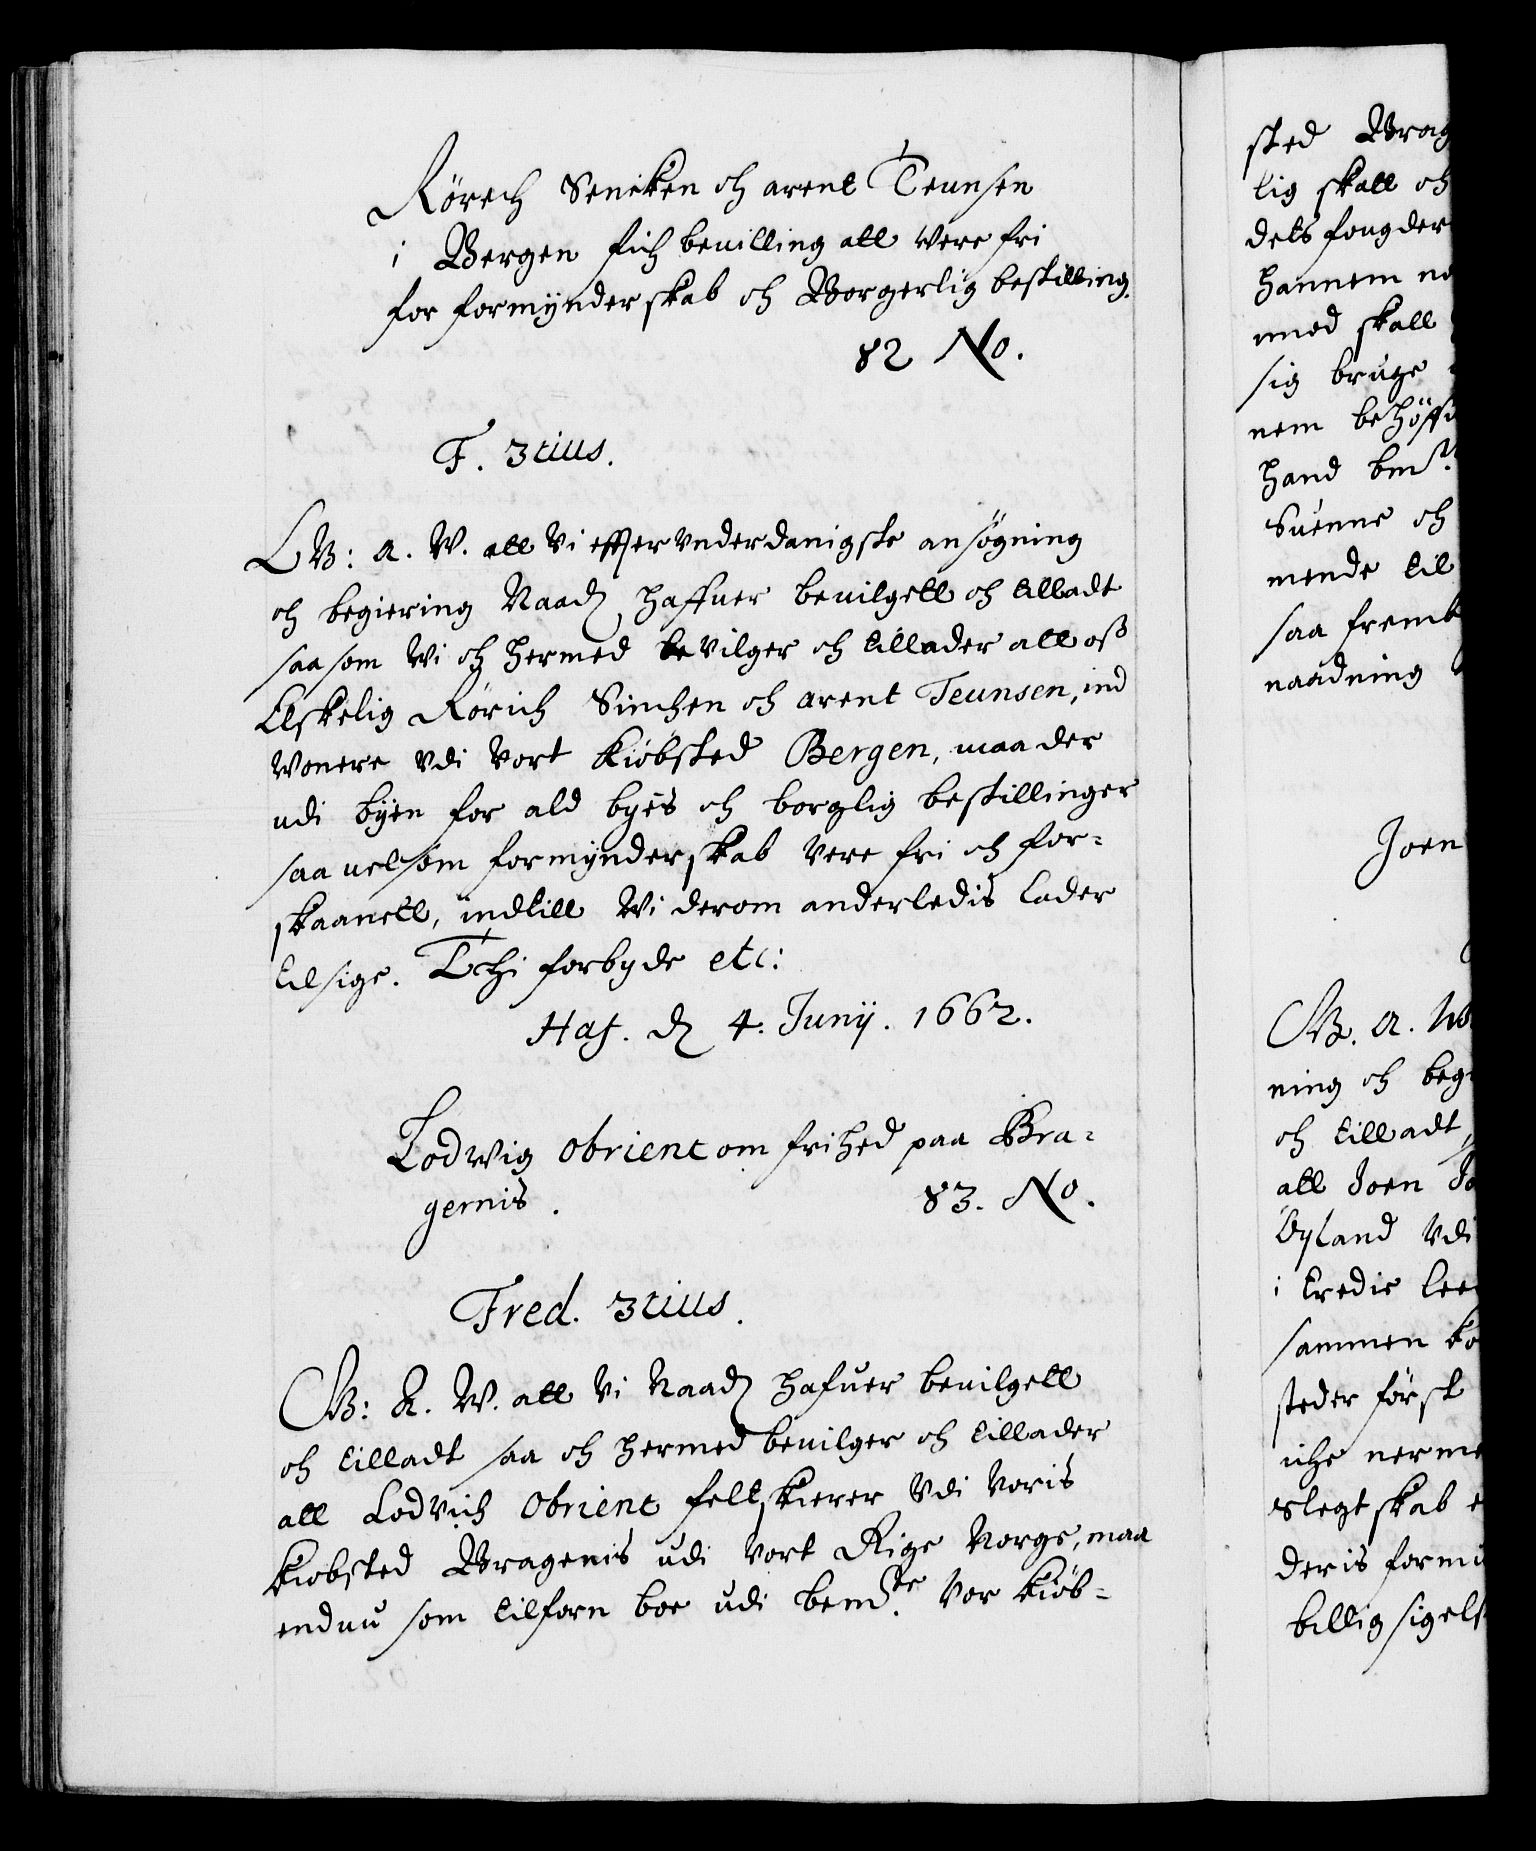 Rörech Seneken och arent Teunsen
i Bergen fich bevilling att vere fri
for formynderskab och Borgerlig bestilling.
82 No.
F. 3tius.
G V: A. W. att Vi effter vnderdanigste ansøgning
och begiering Naad. haffuer bevilgett och tilladt
saa som Wi och hermed beVilger och tillader att oss
Elskelig Rörich Sinchen och arent Teunsen, ind
Wonere Vdi Vort Kiöbsted Bergen, maa der
udi byen for ald byes och borglig bestillinger
saa uelsom formynderskab Vere fri och for-
skaanett, indtill Wi derom anderledis lader
tilsige. Thi forbyde etc:
Haf. d. 4. Junij. 1662.
Lodwig Obrient om frihed paa Bra-
gernis.
83. No.
Fred. 3tius.
G V: A. W. att Vi Naad. hafuer bevilgett
och tilladt saa och hermed bevilger och tillader
att Lodvich Obrient feltskierer Vdi Voris
Kiøbsted Bragenis udi Vort Rige Norge, maa
endnu som tilforn boe udi bemte. Vor Kiöb-
sted Brag
lig skatt och
dets fougder
hannem no
mod skall
sig bruge
nem behöff
hand bmt.
Suenne och
mende til
saa fremt
naadning
Joen
G V. A. W
ning och beg
och tilladt,
att Joen Jo
Oyland Vdi
i tredie lee
sammen ko
steder först
iche nerme
slegtskab e
deris formu
billig sigels